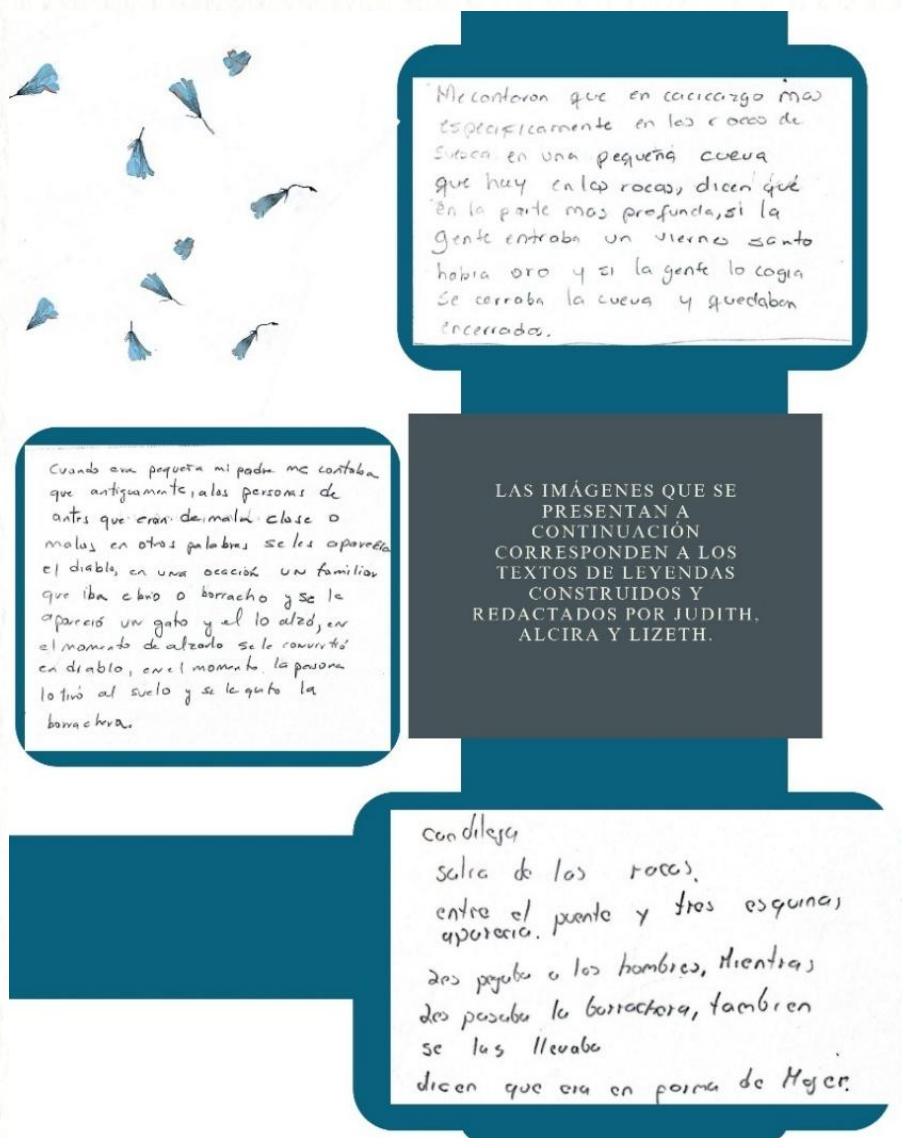 Me contaron que en cacicazgo mas
especificamente en las rocas de
Suesca en una pequeña cueva
que hay en las rocas, dicen qué
en la parte mas profunda, si la
gente entraba un viernes santo
habia oro y si la gente lo cogia
se cerraba la cueva y quedaban
encerrados.
Cuando era pequeña mi padre me contaba
que antiguamente, a las personas de
antes que eran de mala clase o
malas en otras palabras se les aparecía
el diablo, en una ocación un familiar
que iba ebrio o borracho y se le
apareció un gato y el lo alzó, en
el momento de alzarlo se le convirtió
en diablo, en el momento la persona
lo tiró al suelo y se le quito la
borrachera.
LAS IMÁGENES QUE SE
PRESENTAN A
CONTINUACIÓN
CORRESPONDEN A LOS
TEXTOS DE LEYENDAS
CONSTRUIDOS Y
REDACTADOS POR JUDITH,
ALCIRA Y LIZETH.
candileja
salia de las rocas.
entre el puente y tres esquinas
aparecia.
les pegaba a los hombres, Mientras
les pasaba la borrachera, tambien
se las llevaba
dicen que era en forma de Mujer.